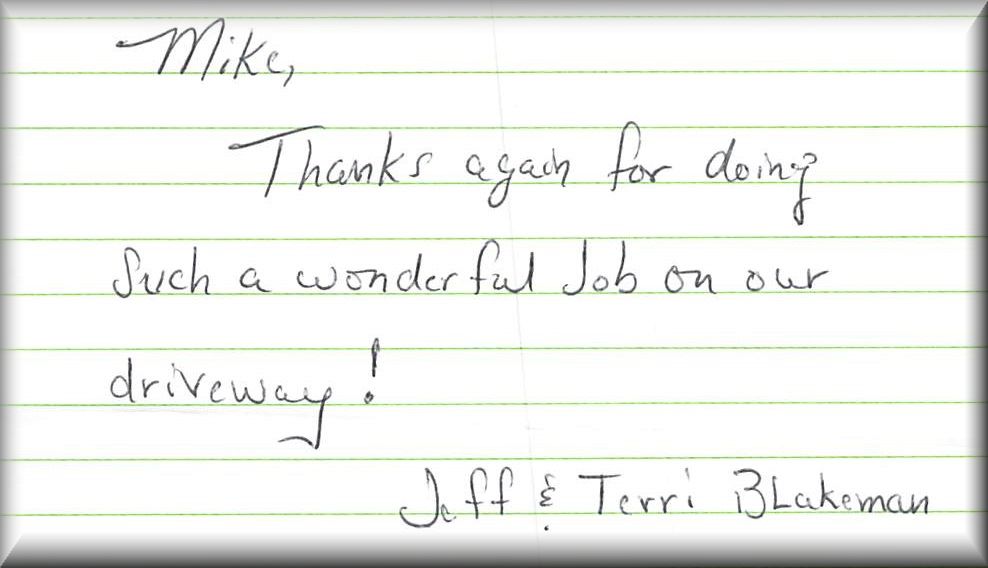 Mike,
Thanks again for doing
Such a wonderful Job on our
driveway!
Jeff & Terri Blakeman